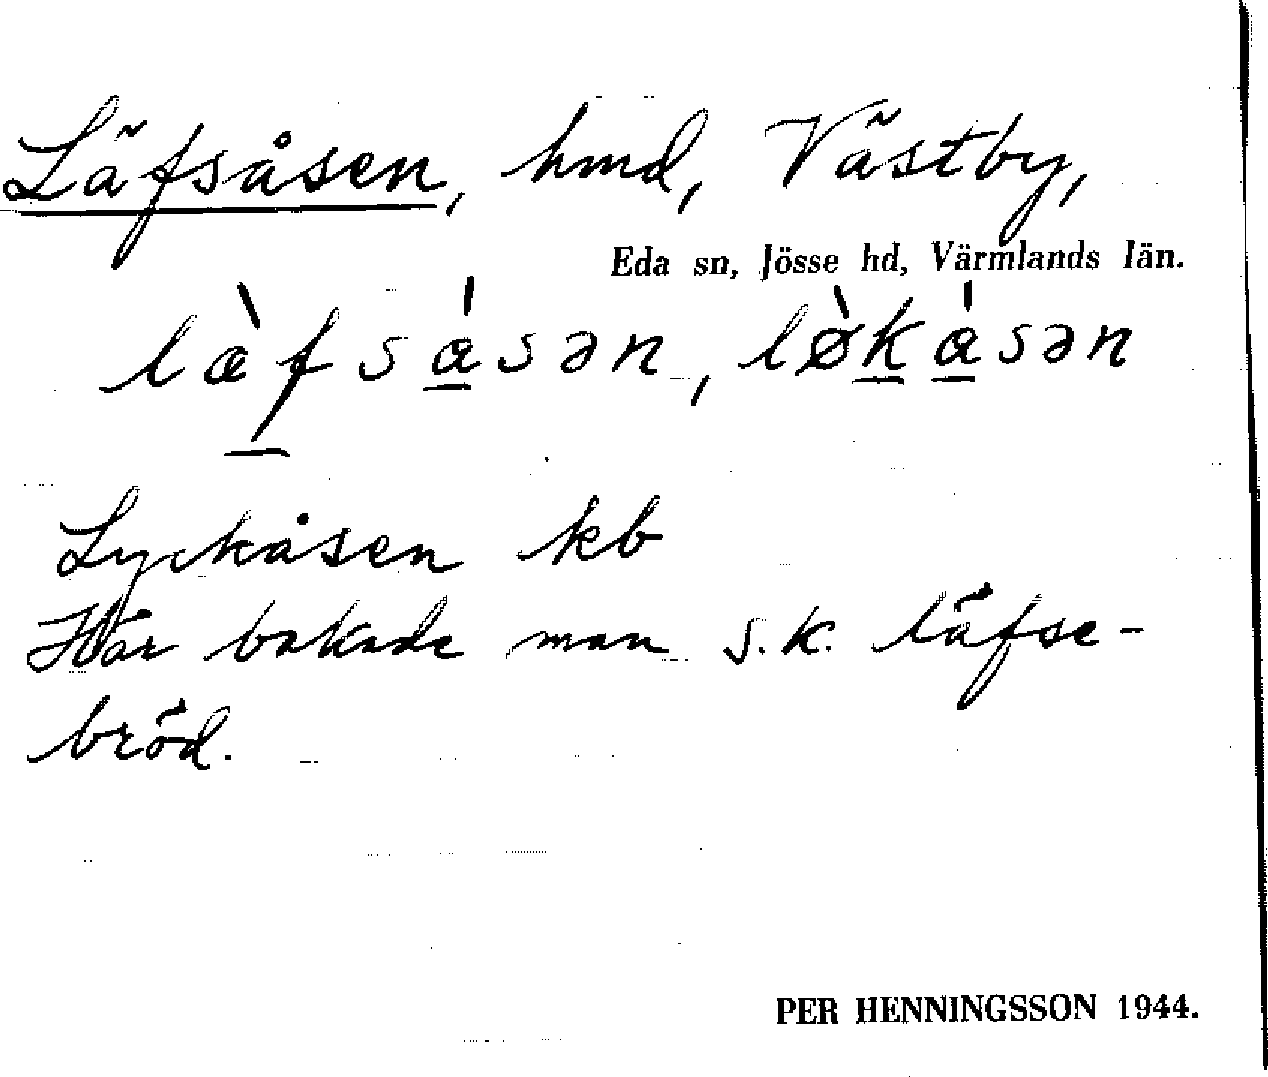 Läfsåsen, hmd, Västby,
Eda sn, Jösse hd, Värmlands län.
læ̀fsásən, lø̀kásən
Lyckåsen kb
Här bakade man s.k. läfse-
bröd.
PER HENNINGSSON 1944.